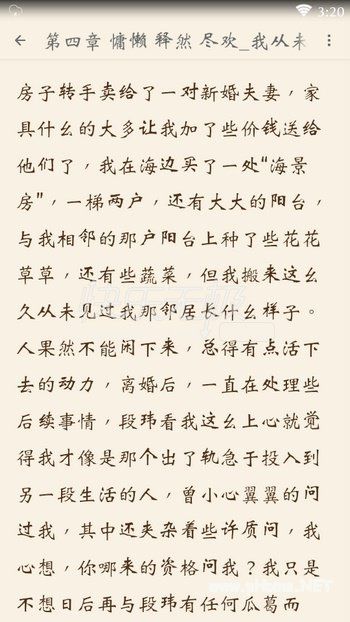 3:20
第四章 慵懒 释然 尽欢_我从未
房子转手卖给了一对新婚夫妻，家
具什么的大多让我加了些价钱送给
他们了，我在海边买了一处“海景
房”，一梯两户，还有大大的阳台，
与我相邻的那户阳台上种了些花花
草草，还有些蔬菜，但我搬来这么
久从未见过我那邻居长什么样子。
人果然不能闲下来，总得有点活下
去的动力，离婚后，一直在处理些
后续事情，段玮看我这么上心就觉
得我才像是那个出了轨急于投入到
另一段生活的人，曾小心翼翼的问
过我，其中还夹杂着些许质问，我
心想，你哪来的资格问我？我只是
不想日后再与段玮有任何瓜葛而